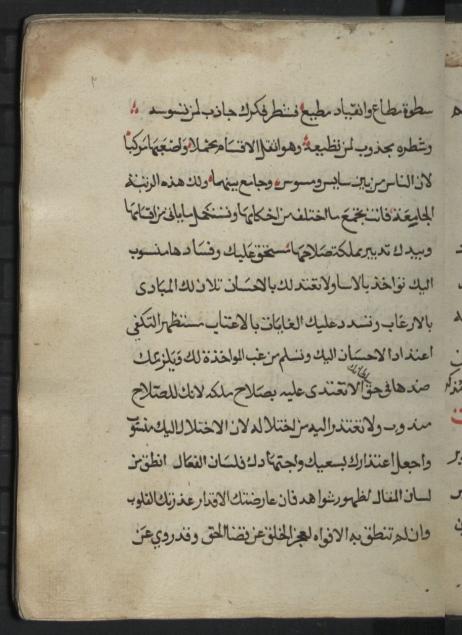 سطوة مطاع وانقياد مطيع فشطر فكرك جاذب لمن تسوسه
وشطره مجذوب لمن تطيعه وهو اثقل الاقسام محملا واصعبها مركبا
لان الناس من بين سايس ومسوس وجامع بينهما ولك هذه الرتبة
الجامعة فانت تجتمع ما اختلف من احكامها وتستكمل ما يأتي من اقسامها
وبيدك تدبير مملكة صلاحها مستحق عليك وفسادها منسوب
اليك تواخذ بالاساة ولا تعتد لك بالاحسان تلان لك المبادى
بالارغاب وتشدد عليك الغايات بالاعتاب مستظهرا لتكفى
اعتدادا لاحسان اليك وتسلم من غب المواخذة لك ويلزمك
ضدها في حق الا تعتدى عليه بصلاح ملكه لانك للصلاح
مندوب ولا تعتذر اليه من اختلاله لان الاختلال اليك منسوب
واجعل اعتذارك بسعيك واجتهادك فلسان الفعال انطق من
لسان المقال لظهور شواهده فان عارضتك الاقدار عذرتك القلوب
وان لم تنطق به الافواه لعجز الخلق عن قضا الحق وقد روي عن